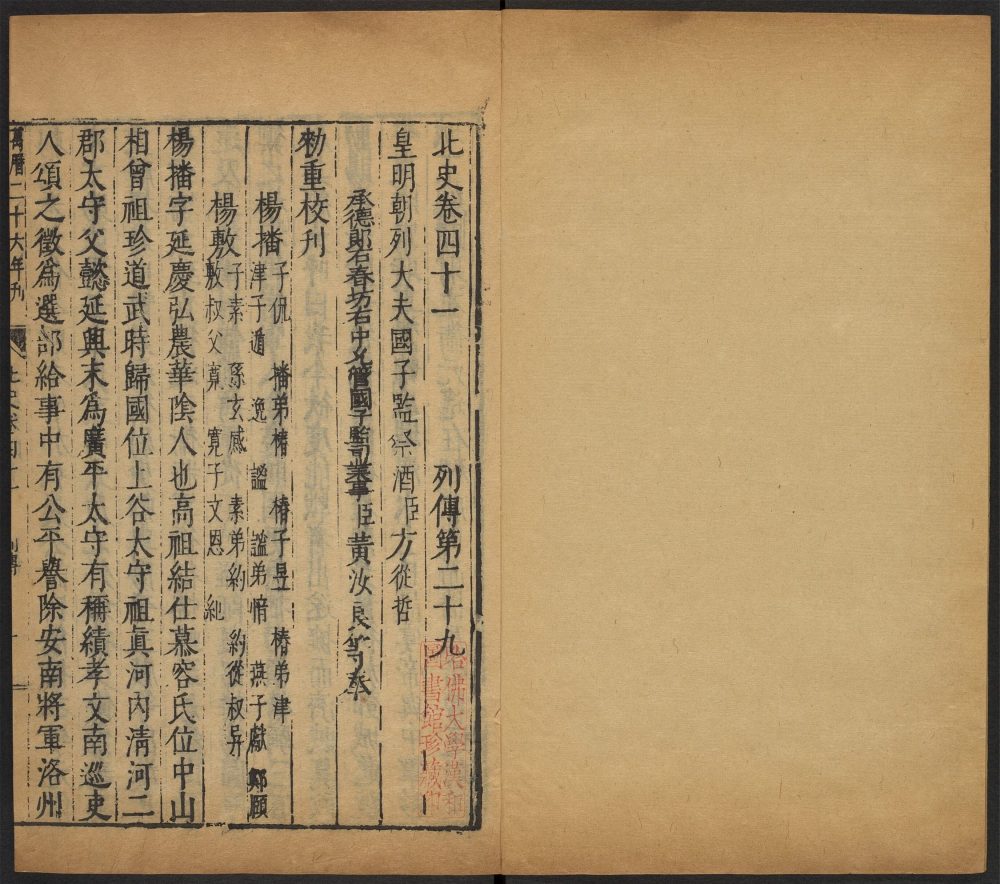 北史卷四十一　列傳第二十九
皇明朝列大夫國子監祭酒臣方從哲
承德郎右春坊右中允管國子監司業事臣黃汝良等奉
勑重校刊
楊播 子侃　播弟椿　椿子昱　椿弟津
津子遁　逸　謐　謐弟愔　燕子獻　鄭頤
楊敷 子素　孫玄感　素弟約　約從叔异
敷叔父寬　寬子文恩　紀
楊播字延慶弘農華陰人也高祖結仕慕容氏位中山
相曾祖珍道武時歸國位上谷太守祖眞河內清河二
郡太守父懿延興末爲廣平太守有稱績孝文南巡吏
人頌之徵爲選部給事中有公平譽除安南將軍洛州
萬曆二十六年刊
北史卷四十一　列傳　一
哈佛大學漢和
圖書館珍藏印